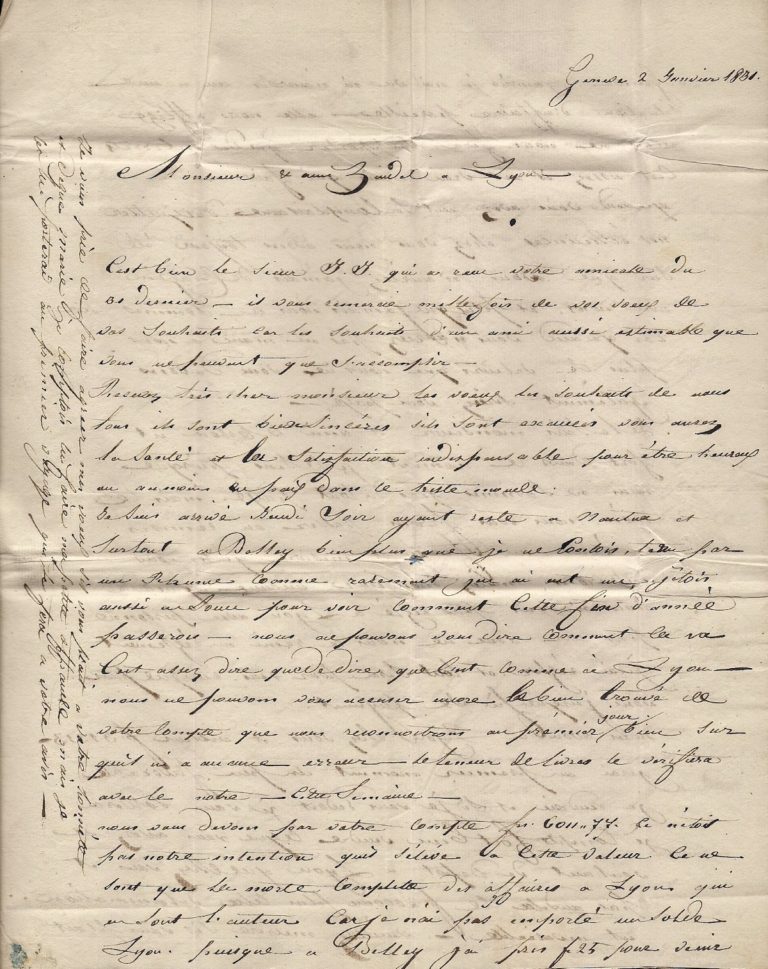 Geneve 2 Janvier 1831.
Monsieur & ami à Lyon
C'est bien le sieur J. J qui a reçu votre amicale du
31 dernier – il vous remercie mille fois de vos voeux de
vos souhaits car les souhaits d'un ami aussi estimable que
vous ne peuvent que s'accomplir –
Recevez très cher monsieur les voeux les souhaits de nous
tous ils sont bien sincères s'ils sont exaucés vous aurez
la Santé et la Satisfaction indispensable pour être heureux
ou au moins en paix dans ce triste monde.
Je suis arrivé Jeudi Soir ayant resté a Nantua et
Surtout a Belley bien plus que je ne voulois, tenu par
un Rhume comme rarement j'en ai eut un, j'étois
aussi en Souci pour voir comment cette fin d'année
passerois – nous ne pouvons vous dire comment la va
C'est assez dire que de dire que c'est comme à Lyon –
nous ne pouvons vous accuser encore le bien trouvé de
votre Compte que nous reconnoitrons au premier jour bien sur
qu'il n'i a aucune erreur – le teneur de livres le vérifiera
avec le notre – cette Semaine –
nous vous devons par votre Compte fr. 6011..77. Ce n'étoit
pas notre intention qu'il s'élève a cette valeur ce ne
sont que la morte complette des affaires a Lyon qui
en sont l'auteur car je n'ai pas emporté un Solde
Lyon. puisque a Belley j'ai pris f 25 pour venir
Je vous prie de faire agréer mes voeux s'il vous plait a votre honnête
et digne marie Je comptois lui faire ma petite offrande mais je
la lui porterai au premier voyage que je ferai a votre